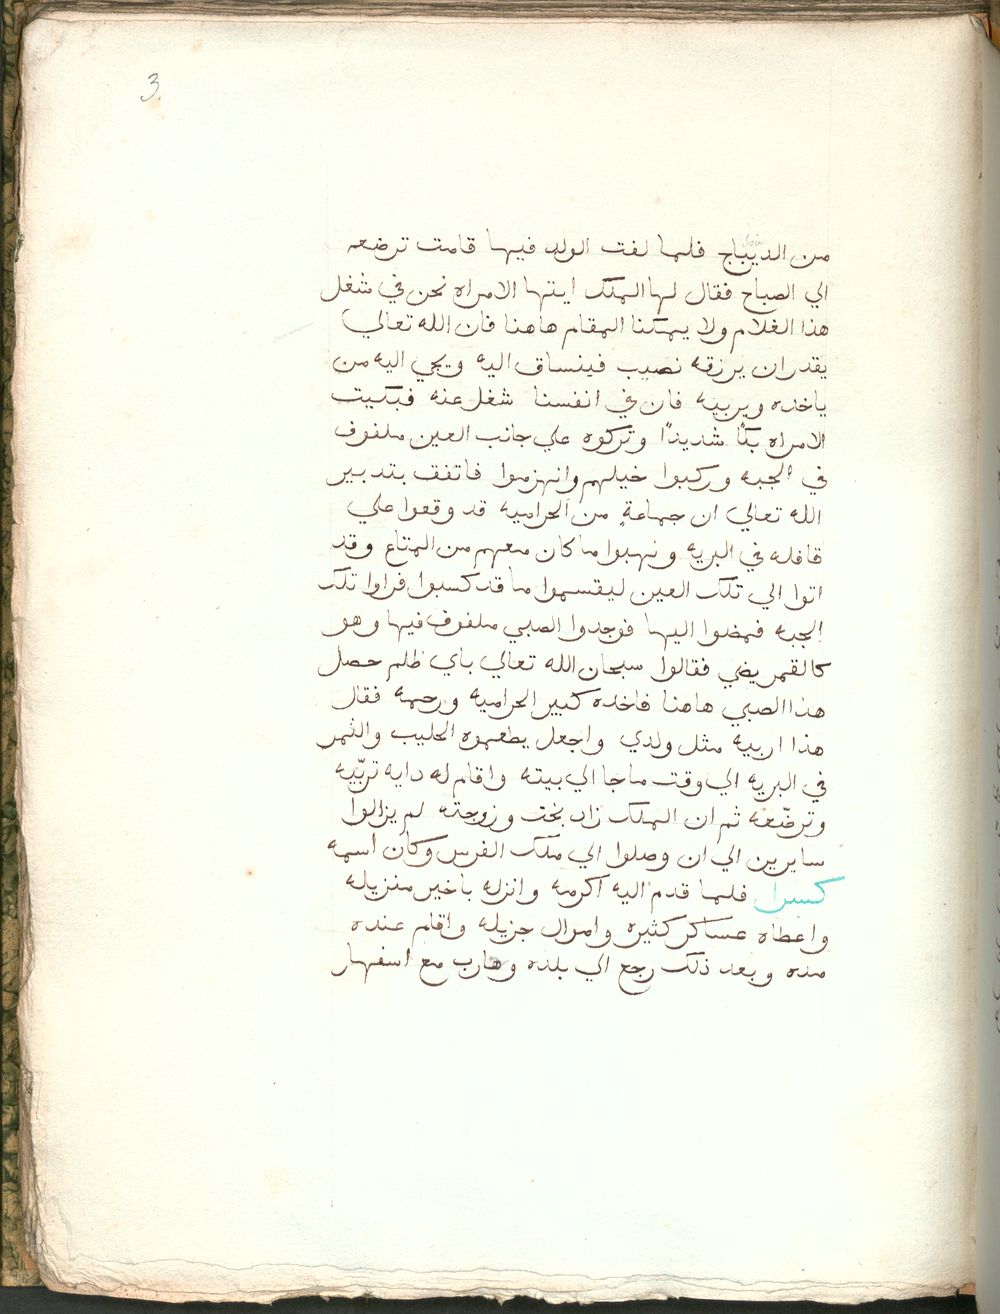 3.
من الديباج فلما لفت الولد فيها قامت ترضعه
الي الصباح فقال لها الملك ايتها الامراه نحن في شغل
هذا الغلام ولا يمكننا المقام هاهنا فان الله تعالي
يقدر ان يرزقه نصيب فينساق اليه ويجي اليه من
ياخده ويربيه فان في انفسنا شغل عنه فبكيت
الامراه بكًا شديدًا وتركوه علي جانب العين ملفوف
في الجبه وركبوا خيلهم وانهزموا فاتفق بتدبير
الله تعالي ان جماعةٍ من الحراميه قد وقعوا علي
قافله في البريه ونهبوا ما كان معهم من المتاع وقد
اتوا الي تلك العين ليقسموا ما قد كسبوا فراوا تلك
الجبه فمضوا اليها فوجدوا الصبي ملفوف فيها وهو
كالقمر يضي فقالوا سبحان الله تعالي باي ظلم حصل
هذا الصبي هاهنا فاخده كبير الحراميه ورحمه فقال
هذا اربيه مثل ولدي واجعل يطعموه الحليب والثمر
في البريه الي وقت ما جا الي بيته واقام له دايه تربّيه
وترضّعه ثم ان الملك زاد بخت وزوجته لم يزالوا
سايرين الي ان وصلوا الي ملك الفرس وكان اسمه
كسرا فلما قدم اليه اكرمه وانزله باخير منزيله
واعطاه عساكر كثيره واموال جزيله واقام عنده
مده وبعد ذلك رجع الي بلده وحارب مع اسفهار